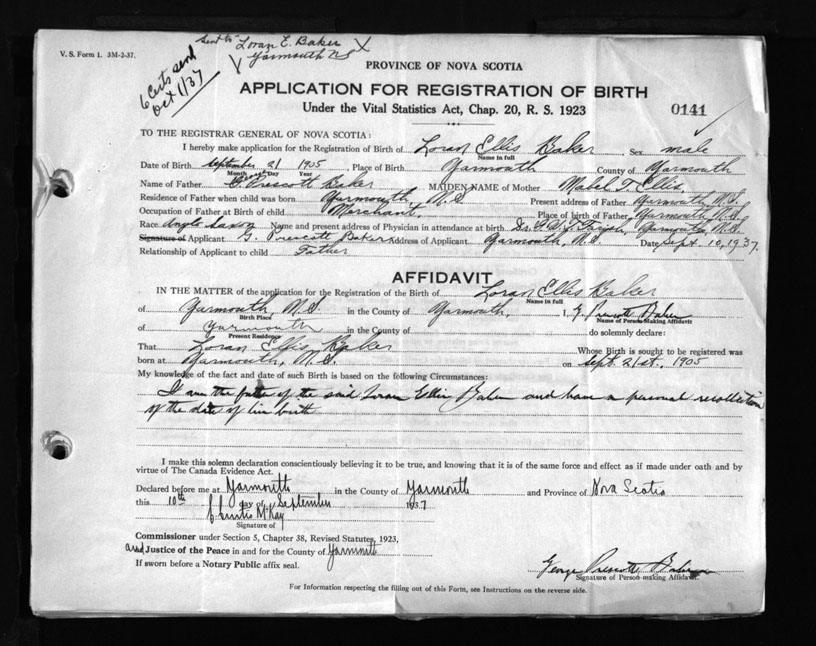 V. S. Form 1. 3M-2-37.
Sent to Loran E. Baker
Yarmouth NS
6 Certs send
Oct 1/37
PROVINCE OF NOVA SCOTIA
APPLICATION FOR REGISTRATION OF BIRTH
Under the Vital Statistics Act, Chap. 20, R. S. 1923
0141
TO THE REGISTRAR GENERAL OF NOVA SCOTIA:
I hereby make application for the Registration of Birth of Loran Ellis Baker Sex male
Name in full
Date of Birth September 21 1905, Place of Birth Yarmouth County of Yarmouth
Month Day Year
Name of Father G. Prescott Baker MAIDEN NAME of Mother Mabel T. Ellis
Residence of Father when child was born Yarmouth, N.S Present address of Father Yarmouth, N.S.
Occupation of Father at Birth of child Merchant. Place of birth of Father Yarmouth, N.S.
Race Anglo Saxon Name and present Address of Physician in attendance at birth Dr. Yarmouth, N.S.
Signature of Applicant G. Prescott Baker Address of Applicant Yarmouth, N.S. Date Sept. 10, 1937.
Relationship of Applicant to child Father
AFFIDAVIT
IN THE MATTER of the application for the Registration of the Birth of Loran Ellis Baker
Name in full
of Yarmouth, N.S in the County of Yarmouth, I, G Prescott Baker
Birth Place Name of Person Making Affidavit
of Yarmouth in the County of do solemnly declare:
Present Residence
That Loran Ellis Baker Whose Birth is sought to be registered was
born at Yarmouth, N.S. on Sept. 21st, 1905
My knowledge of the fact and date of such Birth is based on the following Circumstances:
I am the father of the said Loran Ellis Baker and have a personal recollection
of the date of his birth
I make this solemn declaration conscientiously believing it to be true, and knowing that it is of the same force and effect as if made under oath and by
virtue of The Canada Evidence Act.
Declared before me at Yarmouth in the County of Yarmouth and Province of Nova Scotia
this 10th day of September 1937
McKay
Signature of
Commissioner under Section 5, Chapter 38, Revised Statutes, 1923,
and Justice of the Peace in and for the County of Yarmouth
If sworn before a Notary Public affix seal.
George Prescott Baker
Signature of Person making Affidavit.
For Information respecting the filling out of this Form, see Instructions on the reverse side.